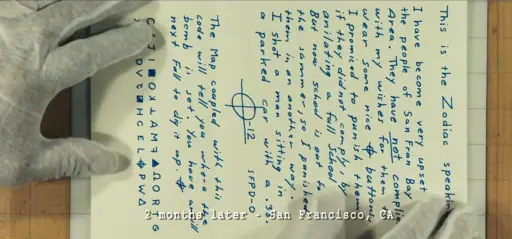 This is the Zodiac speaking
I have become very upset
the people of San Fran Bay
Area. They have not complied
with my wishes for them to
wear some nice ⌖ buttons.
I promiced to punish them
if they did not comply, by
anilating a full School
But now school is out for
the summer, so I punished
them in an another way.
I shot a man sitting in
a parked car with a .38.
⌖-12 SFPD-0
The Map coupled with this
code will tell you where the
bomb is set. You have until
next Fall to dig it up. ⌖
2 months later - San Francisco, CA